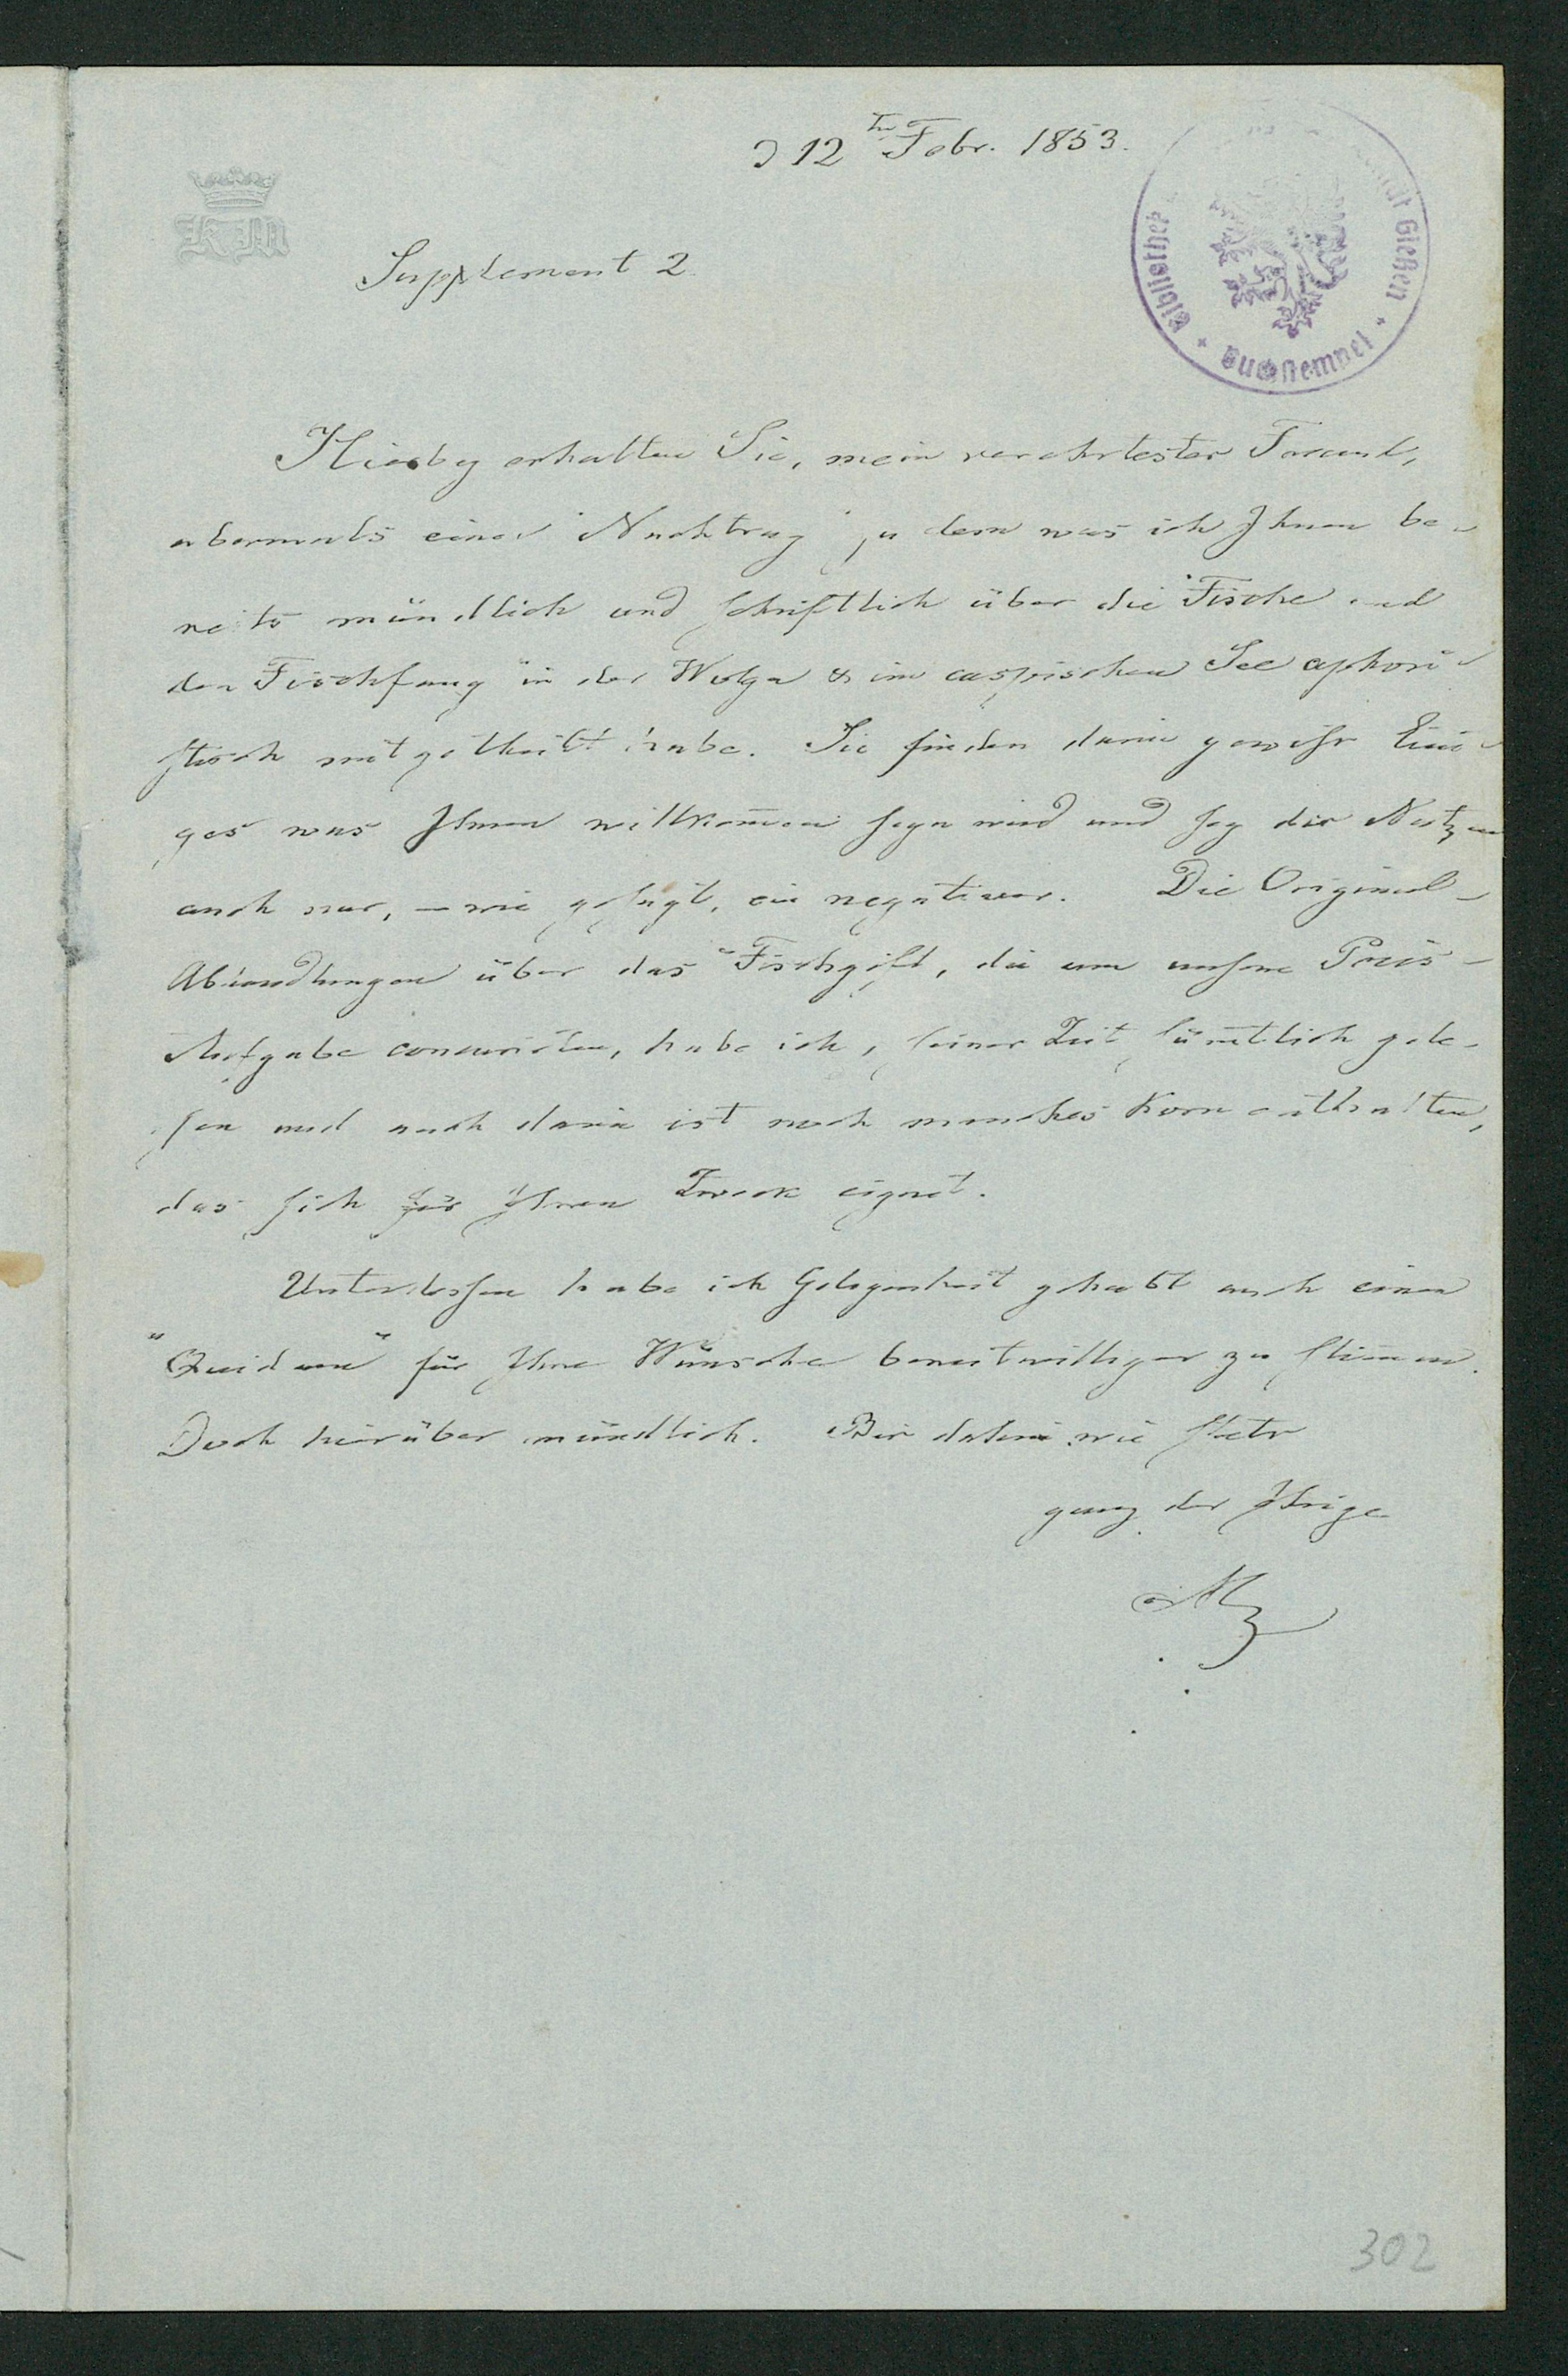 D 12ten Febr. 1853.
KM
Supplement 2.
Bibliothek Gießen
Buchstempel
Hierbey erhalten Sie, mein verehrtester Freund,
abermals einen "Nachtrag" zu dem was ich Ihnen be-
reits mündlich und schriftlich über die "Fische und
den Fischfang" in der Wolga & im caspischen See aphori-
stisch mitgetheilt habe. Sie finden darin gewiss Eini-
ges was Ihnen willkom̄en seyn wird und sey der Nutzen
auch nur, – wie gesagt, ein negativer. Die Original-
Abhandlungen über das "Fischgift, die um unsere Preis-
Aufgabe concurirten, habe ich, seiner Zeit sämtlich gele-
sen und auch darin ist noch manches Korn enthalten,
das sich für Ihren Zweck eignet.
Unterdessen habe ich Gelegenheit gehabt auch einen
"Quidam" für Ihre Wünsche bereitwilliger zu stim̄en.
Doch hierüber mündlich. Bis dahin wie stets
ganz der Ihrige
302